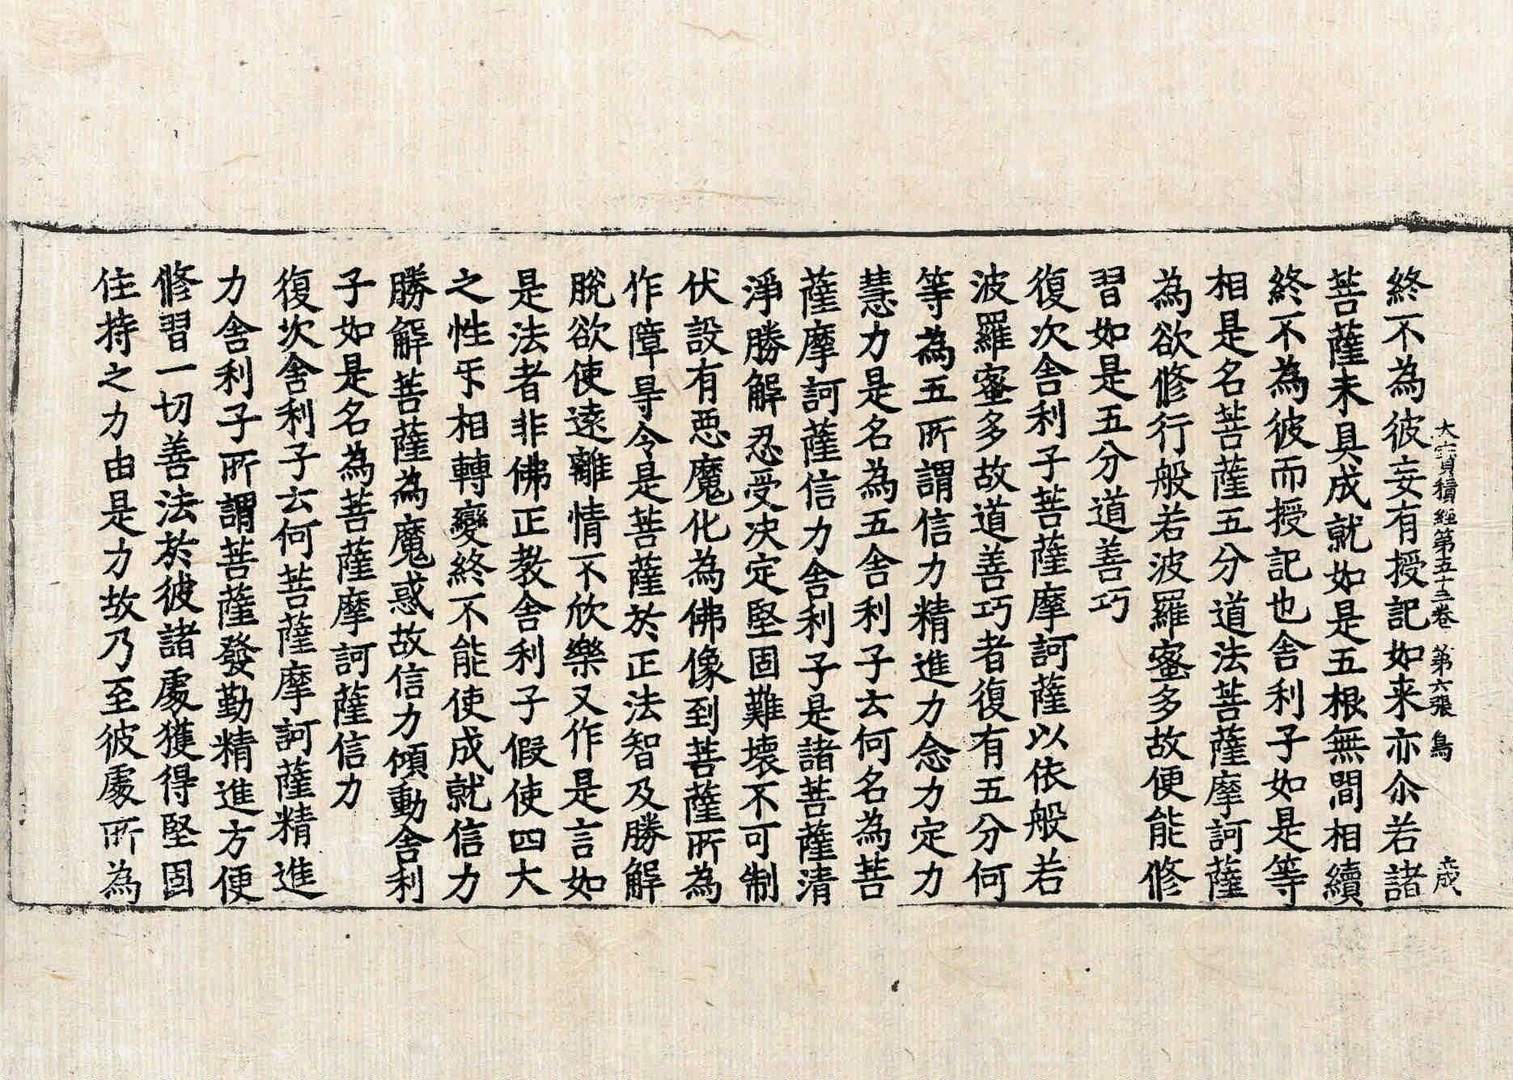 大寶積經第五十三卷 第六張 鳥
終不為彼妄有授記如来亦尒若諸
菩薩未具成就如是五根無間相續
終不為彼而授記也舎利子如是等
相是名菩薩五分道法菩薩摩訶薩
為欲修行般若波羅蜜多故便能修
習如是五分道善巧
復次舎利子菩薩摩訶薩以依般若
波羅蜜多故道善巧者復有五分何
等為五所謂信力精進力念力定力
慧力是名為五舎利子云何名為菩
薩摩訶薩信力舎利子是諸菩薩清
淨勝解忍受决定堅固難壞不可制
伏設有惡魔化為佛像到菩薩所為
作障㝵令是菩薩於正法智及勝解
脫欲使遠離情不欣樂又作是言如
是法者非佛正教舎利子假使四大
之性㸦相轉變終不能使成就信力
勝解菩薩為魔惑故信力傾動舎利
子如是名為菩薩摩訶薩信力
復次舎利子云何菩薩摩訶薩精進
力舎利子所謂菩薩發勤精進方便
修習一切善法於彼諸處獲得堅固
住持之力由是力故乃至彼處所為